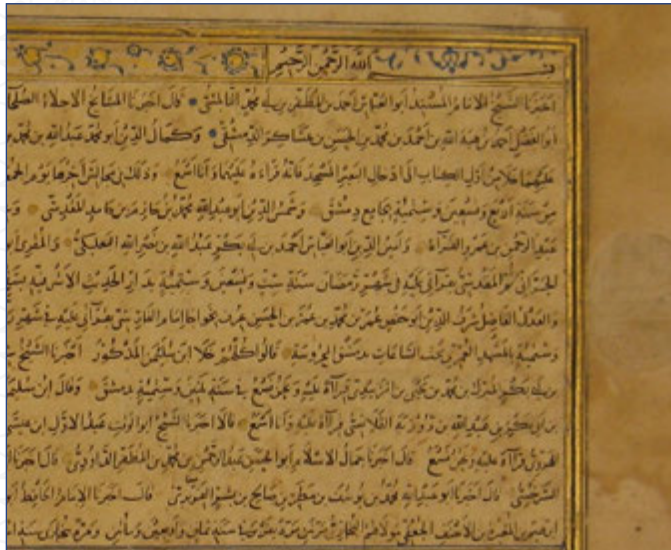 بسم الله الرحمن الرحيم
اخبرنا الشيخ الامام المسند ابو العباس احمد بن المظفر بن ابي محمد النابلسي قال اخبرنا المشايخ الاجلاء
ابو الفضل احمد بن هبة الله بن احمد بن محمد بن الحسن بن عساكر الدمشقي وكمال الدين ابو محمد عبد الله بن محمد بن
عليهما خلا من اول الكتاب الى ادخال البعير المسجد فانه قراءة عليهما وانا اسمع وذلك
من سنة اربع وتسعين وستمية بجامع دمشق وشمس الدين ابو عبد الله محمد بن حازم بن حامد المقدسي
عبد الرحمن بن عمرو الفراء وامين الدين ابو العباس احمد بن ابي بكر بن عبد الله بن خير الله البعلبكي والمقرئ
بقراءتي عليه في شهر رمضان سنة ست وتسعين وستمية بدار الحديث الاشرفية
والعدل الفاضل شرف الدين ابو حفص عمر بن محمد بن عمر بن الحسن عرف بخواجا امام الفارسي بقراءتي عليه في شهر
وستمية بالمشهد تحت الساعات بدمشق المحروسة قالوا كلهم خلا ابن سليمن المذكور اخبرنا الشيخ
بن ابي بكر المبارك بن محمد بن يحيى بن الزبيدي قراءة عليه ونحن نسمع في سنة ثلثين وستمية بدمشق وقال ابن سليمن
بن ابي بكر بن عبد الله بن روزبة القلانسي قراءة عليه وانا اسمع قالا اخبرنا الشيخ ابو الوقت عبد الاول ابن عيسى
الهروي قراءة عليه ونحن نسمع قال اخبرنا جمال الاسلام ابو الحسن عبد الرحمن بن محمد بن المظفر الداودي قال اخبرنا
السرخسي قال اخبرنا ابو عبد الله محمد بن يوسف بن مطر بن صالح بن بشر الفربري قال اخبرنا الامام الحافظ
ابرهيم بن المغيرة بن الاحنف الجعفي مولاهم البخاري مرتين مرة بفربر سنة ثمان واربعين وماتين ومرة ببخارى سنة